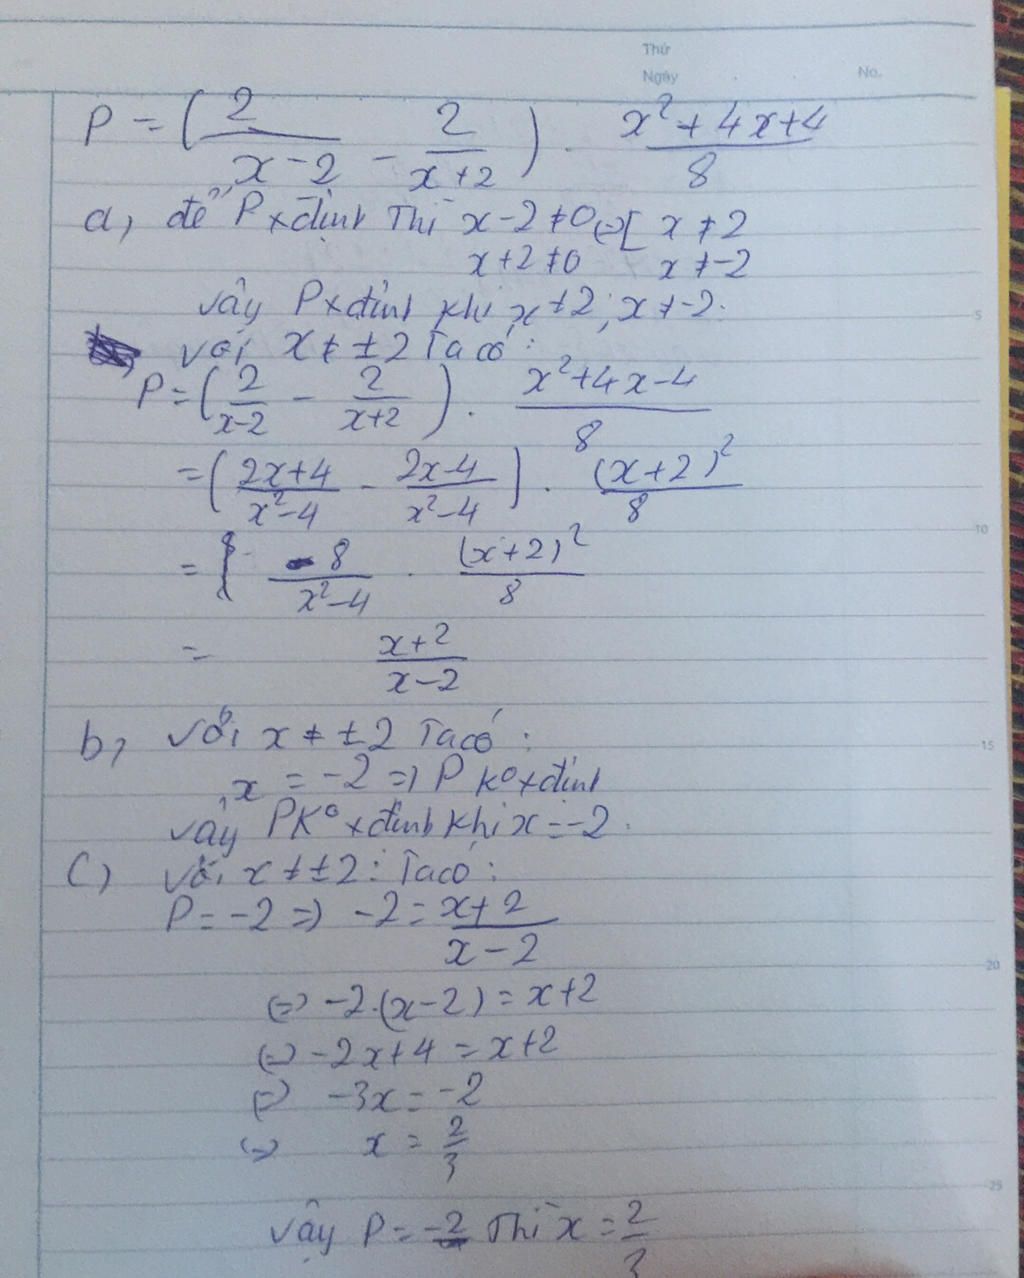 Thứ
Ngày No.
P = ( 2/(x-2) - 2/(x+2) ) . (x²+4x+4)/8
a, để P xđịnh Thì x-2≠0 (=) [ x ≠ 2
x+2≠0 x ≠ -2
vậy P xđịnh khi x ≠ 2 ; x ≠ -2.
với x ≠ ±2 Ta có :
P = ( 2/(x-2) - 2/(x+2) ) . (x²+4x-4)/8
= ( (2x+4)/(x²-4) - (2x-4)/(x²-4) ) . (x+2)²/8
= 8/(x²-4) . (x+2)²/8
= (x+2)/(x-2)
5
10
b, với x ≠ ±2 Ta có :
15
x = -2 => P k° xđịnh
vậy P K° xđịnh khi x = -2.
c) với x ≠ ±2 : Ta có :
P = -2 => -2 = (x+2)/(x-2)
20
(=) -2.(x-2) = x+2
(=) -2x+4 = x+2
(=) -3x = -2
(=) x = 2/3
25
vậy P = -2 Thì x = 2/3